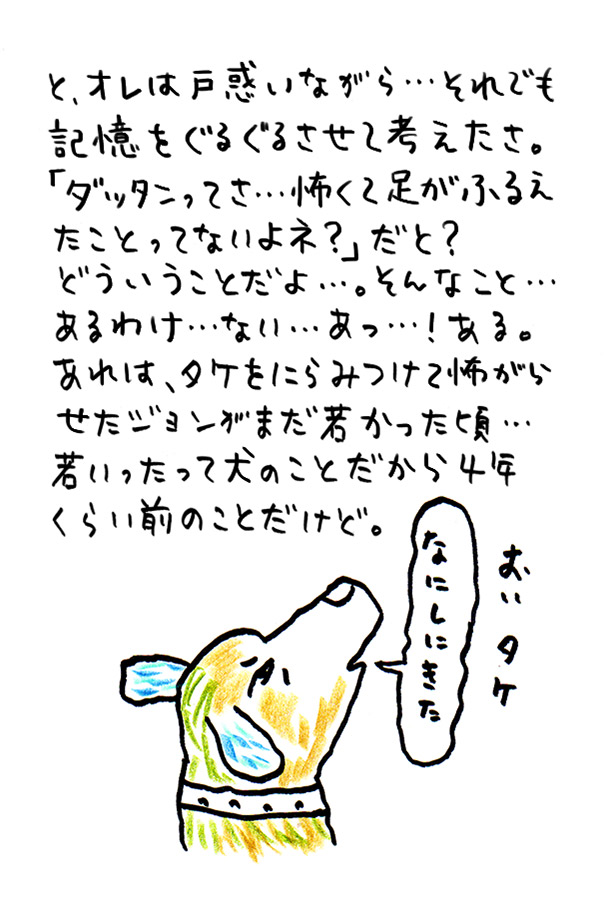 と、オレは戸惑いながら…それでも
記憶をぐるぐるさせて考えたさ。
「ダッタンってさ…怖くて足がふるえ
たことってないよネ？」だと？
どういうことだよ…。そんなこと…
あるわけ…ない…あっ…！ある。
あれは、タケをにらみつけて怖がら
せたジョンがまだ若かった頃…
若いったって犬のことだから4年
くらい前のことだけど。
おい タケ
なにしにきた